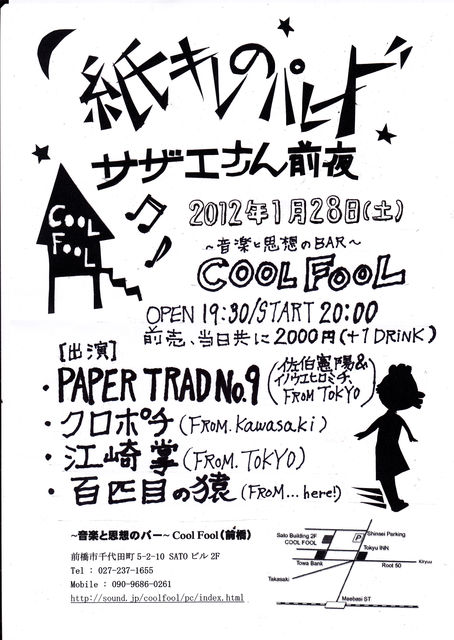 紙キレのパレード
サザエさん前夜
COOL
FOOL
2012年1月28日(土)
~音楽と思想のBAR~
COOL FOOL
OPEN 19:30/START 20:00
前売、当日共に2000円(+1DRINK)
[出演]
・PAPER TRAD No.9 (佐伯憲陽&
イノウエヒロミチ、
FROM TOKYO)
・クロポチ (FROM. Kawasaki)
・江崎掌 (FROM. TOKYO)
・百匹目の猿 (FROM...here!)
~音楽と思想のバー~ Cool Fool (前橋)
前橋市千代田町 5-2-10 SATO ビル 2F
Tel : 027-237-1655
Mobile : 090-9686-0261
http://sound.jp/coolfool/pc/index.html
Sato Building 2F
COOL FOOL
P
Shinsei Parking
Tokyu INN
Towa Bank
Root 50
Kiryuu
Takasaki
Maebasi ST